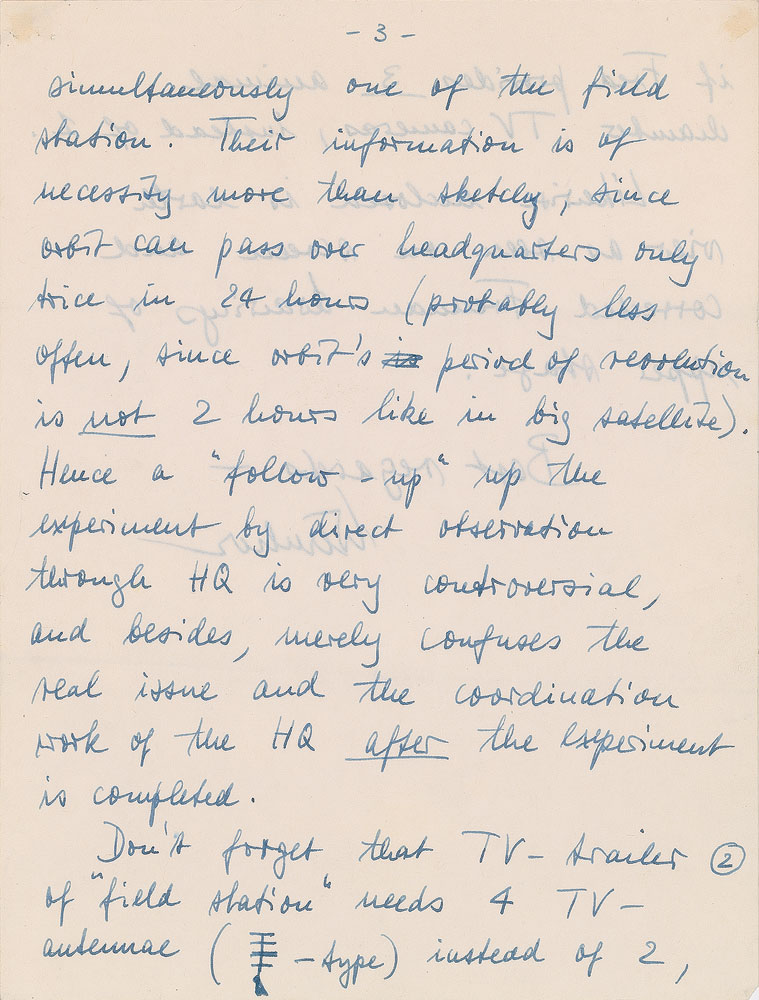 - 3 -
simultaneously one of the field
station. Their information is of
necessity more than sketchy, since
orbit can pass over headquarters only
trice in 24 hours (probably less
often, since orbit's is period of revolution
is not 2 hours like in big satellite).
Hence a "follow-up" up the
experiment by direct observation
through HQ is very controversial,
and besides, merely confuses the
real issue and the coordination
work of the HQ after the experiment
is completed.
Don't forget that TV-trailer ②
of "field station" needs 4 TV-
antennae ( -type) instead of 2,